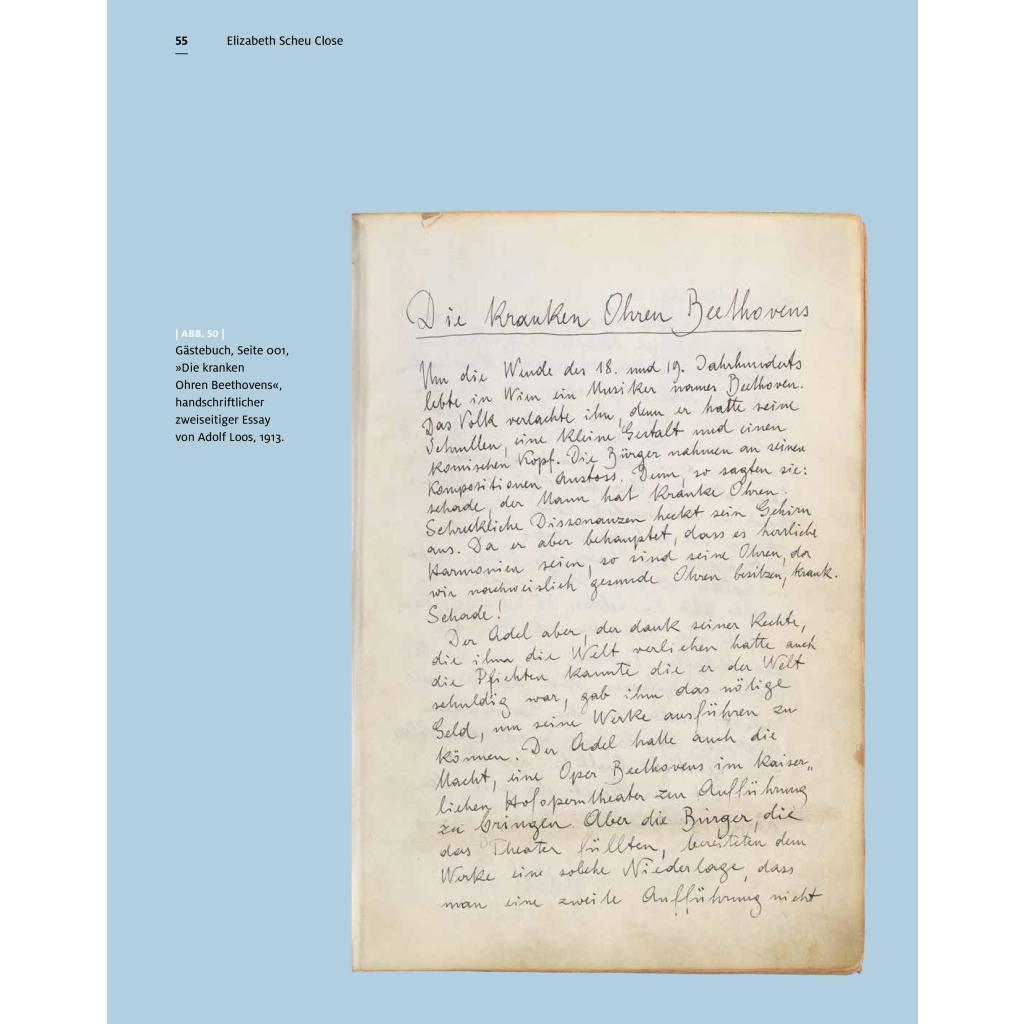 55 Elizabeth Scheu Close
| ABB. 50 |
Gästebuch, Seite 001,
»Die kranken
Ohren Beethovens«,
handschriftlicher
zweiseitiger Essay
von Adolf Loos, 1913.
Die kranken Ohren Beethovens
Um die Wende des 18. und 19. Jahrhunderts
lebte in Wien ein Musiker namens Beethoven.
Das Volk verlachte ihn, denn er hatte seine
Schrullen, eine kleine Gestalt und einen
komischen Kopf. Die Bürger nahmen an seinen
Kompositionen Anstoss. Denn, so sagten sie:
schade, der Mann hat kranke Ohren.
Schreckliche Dissonanzen heckt sein Gehirn
aus. Da er aber behauptet, dass es herrliche
Harmonien seien, so sind seine Ohren, da
wir nachweislich gesunde Ohren besitzen, krank.
Schade!
Der Adel aber, der dank seiner Rechte,
die ihm die Welt verliehen hatte auch
die Pflichten kannte die er der Welt
schuldig war, gab ihm das nötige
Geld, um seine Werke ausführen zu
können. Der Adel hatte auch die
Macht, eine Oper Beethovens im kaiser„
lichen Hofoperntheater zur Aufführung
zu bringen. Aber die Bürger, die
das Theater füllten, bereiteten dem
Werke eine solche Niederlage, dass
man eine zweite Aufführung nicht